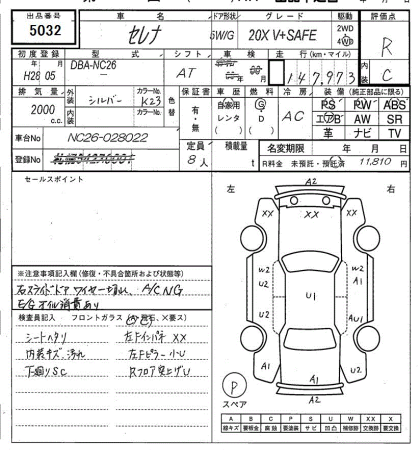 出品番号 車名 ドア形状 グレード 駆動 評価点
5032 セレナ 5W/G 20X V+SAFE 2WD 4WD R
初度登録 型式 シフト 車検 走行(km・マイル) 内装
H28年 05月 DBA-NC26 AT 年 月 147,973 C
排気量 外装 カラーNo. 色替 車歴 燃料 冷房 装備(純正部品に限る)
2000 c.c. シルバー K23 保証書 有・無 自家用 レンタ ( ) G D ( ) AC PS PW ABS
内装 カラーNo. エアB AW SR
革 ナビ TV
車台No NC26-028022 定員 積載量 名変期限 年 月 日
登録No 8人 t R料金 未預託・預託済 11,810円
セールスポイント
左 右
A2
XX XX XX
W2 W2
A2 A1
U1
A1 AU1
U2
A1 A1 U2
A2
P
スペア
※注意事項記入欄(修復・不具合箇所および状態等)
右スライドドアワイヤー切れ、A/C NG
E/Gオイル消費あり
検査員記入 フロントガラス
シートヘタリ 左Fインパネ XX
内装キズ、汚れ 左Fピラー 小U
下廻りSC Rフロア突上げU
A B C P S U W X XX
線キズ 要板金 腐蝕 要塗装 サビ 凹凸 補修跡 交換跡 要交換